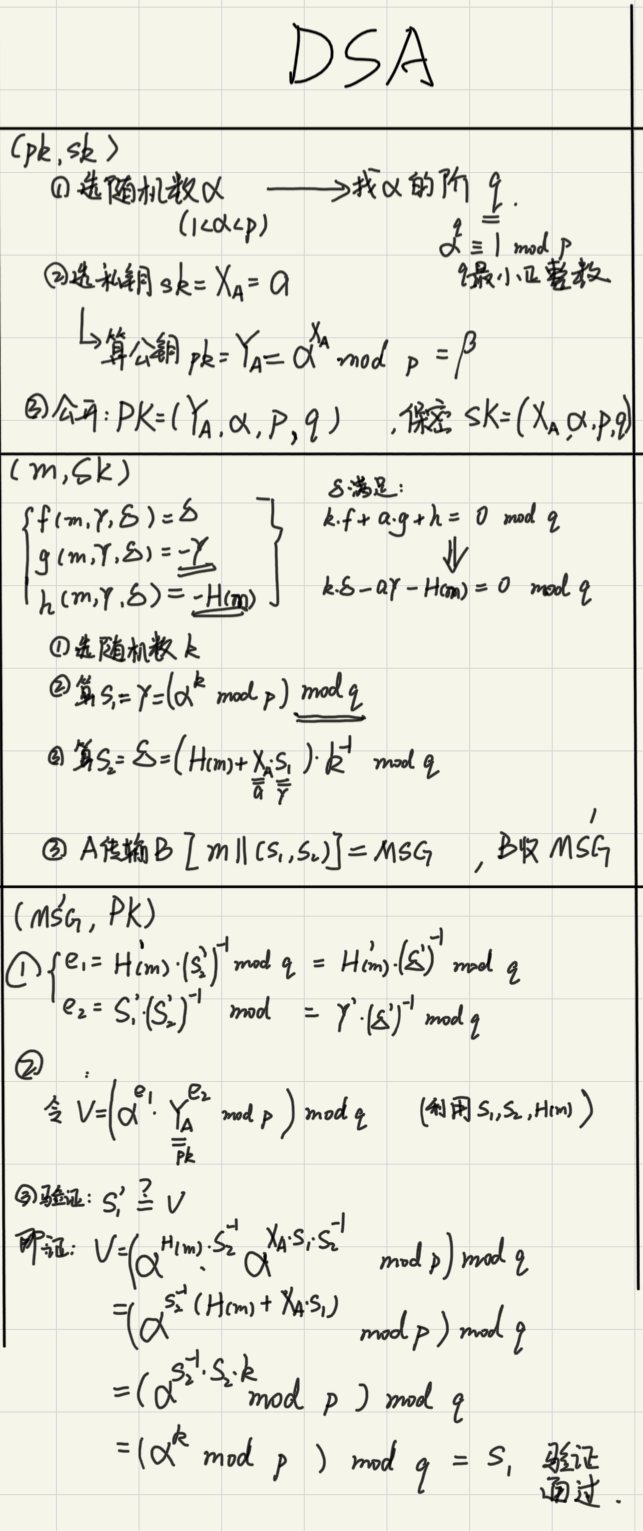 DSA
(pk, sk)
① 选随机数α ⟶ 找α的阶 q.
(1<α<p)
α^q ≡ 1 mod p
q最小正整数
②选私钥 sk = X_A = a
↳算公钥 pk = Y_A = α^{X_A} mod p = β
③公开: PK=(Y_A, α, P, q) , 保密 SK=(X_A, α, p, q)
(m, Sk)
f(m, γ, δ) = δ
g(m, γ, δ) = -γ
h(m, γ, δ) = -H(m)
δ满足:
k·f + a·g + h = 0 mod q
⇓
k·δ - aγ - H(m) = 0 mod q
①选随机数 k
②算S₁ = γ = (α^k mod p) mod q
③算S₂ = δ = (H(m) + X_A·S₁)·k⁻¹ mod q
a γ
③ A传输B [m || (S₁, S₂)] = MSG , B收 MSG'
(MSG', PK)
① { e₁ = H'(m)·(S₂')⁻¹ mod q = H'(m)·(δ')⁻¹ mod q
e₂ = S₁'·(S₂')⁻¹ mod = γ'·(δ')⁻¹ mod q
②
令 V = (α^{e₁}· Y_A^{e₂} mod p) mod q (利用 S₁, S₂, H(m))
pk
③验证: S₁' ≟ V
即证: V = (α^{H(m)·S₂⁻¹}· α^{X_A·S₁·S₂⁻¹} mod p) mod q
= (α^{S₂⁻¹(H(m) + X_A·S₁)} mod p) mod q
= (α^{S₂⁻¹·S₂·k} mod p) mod q
= (α^k mod p) mod q = S₁ 验证
通过.